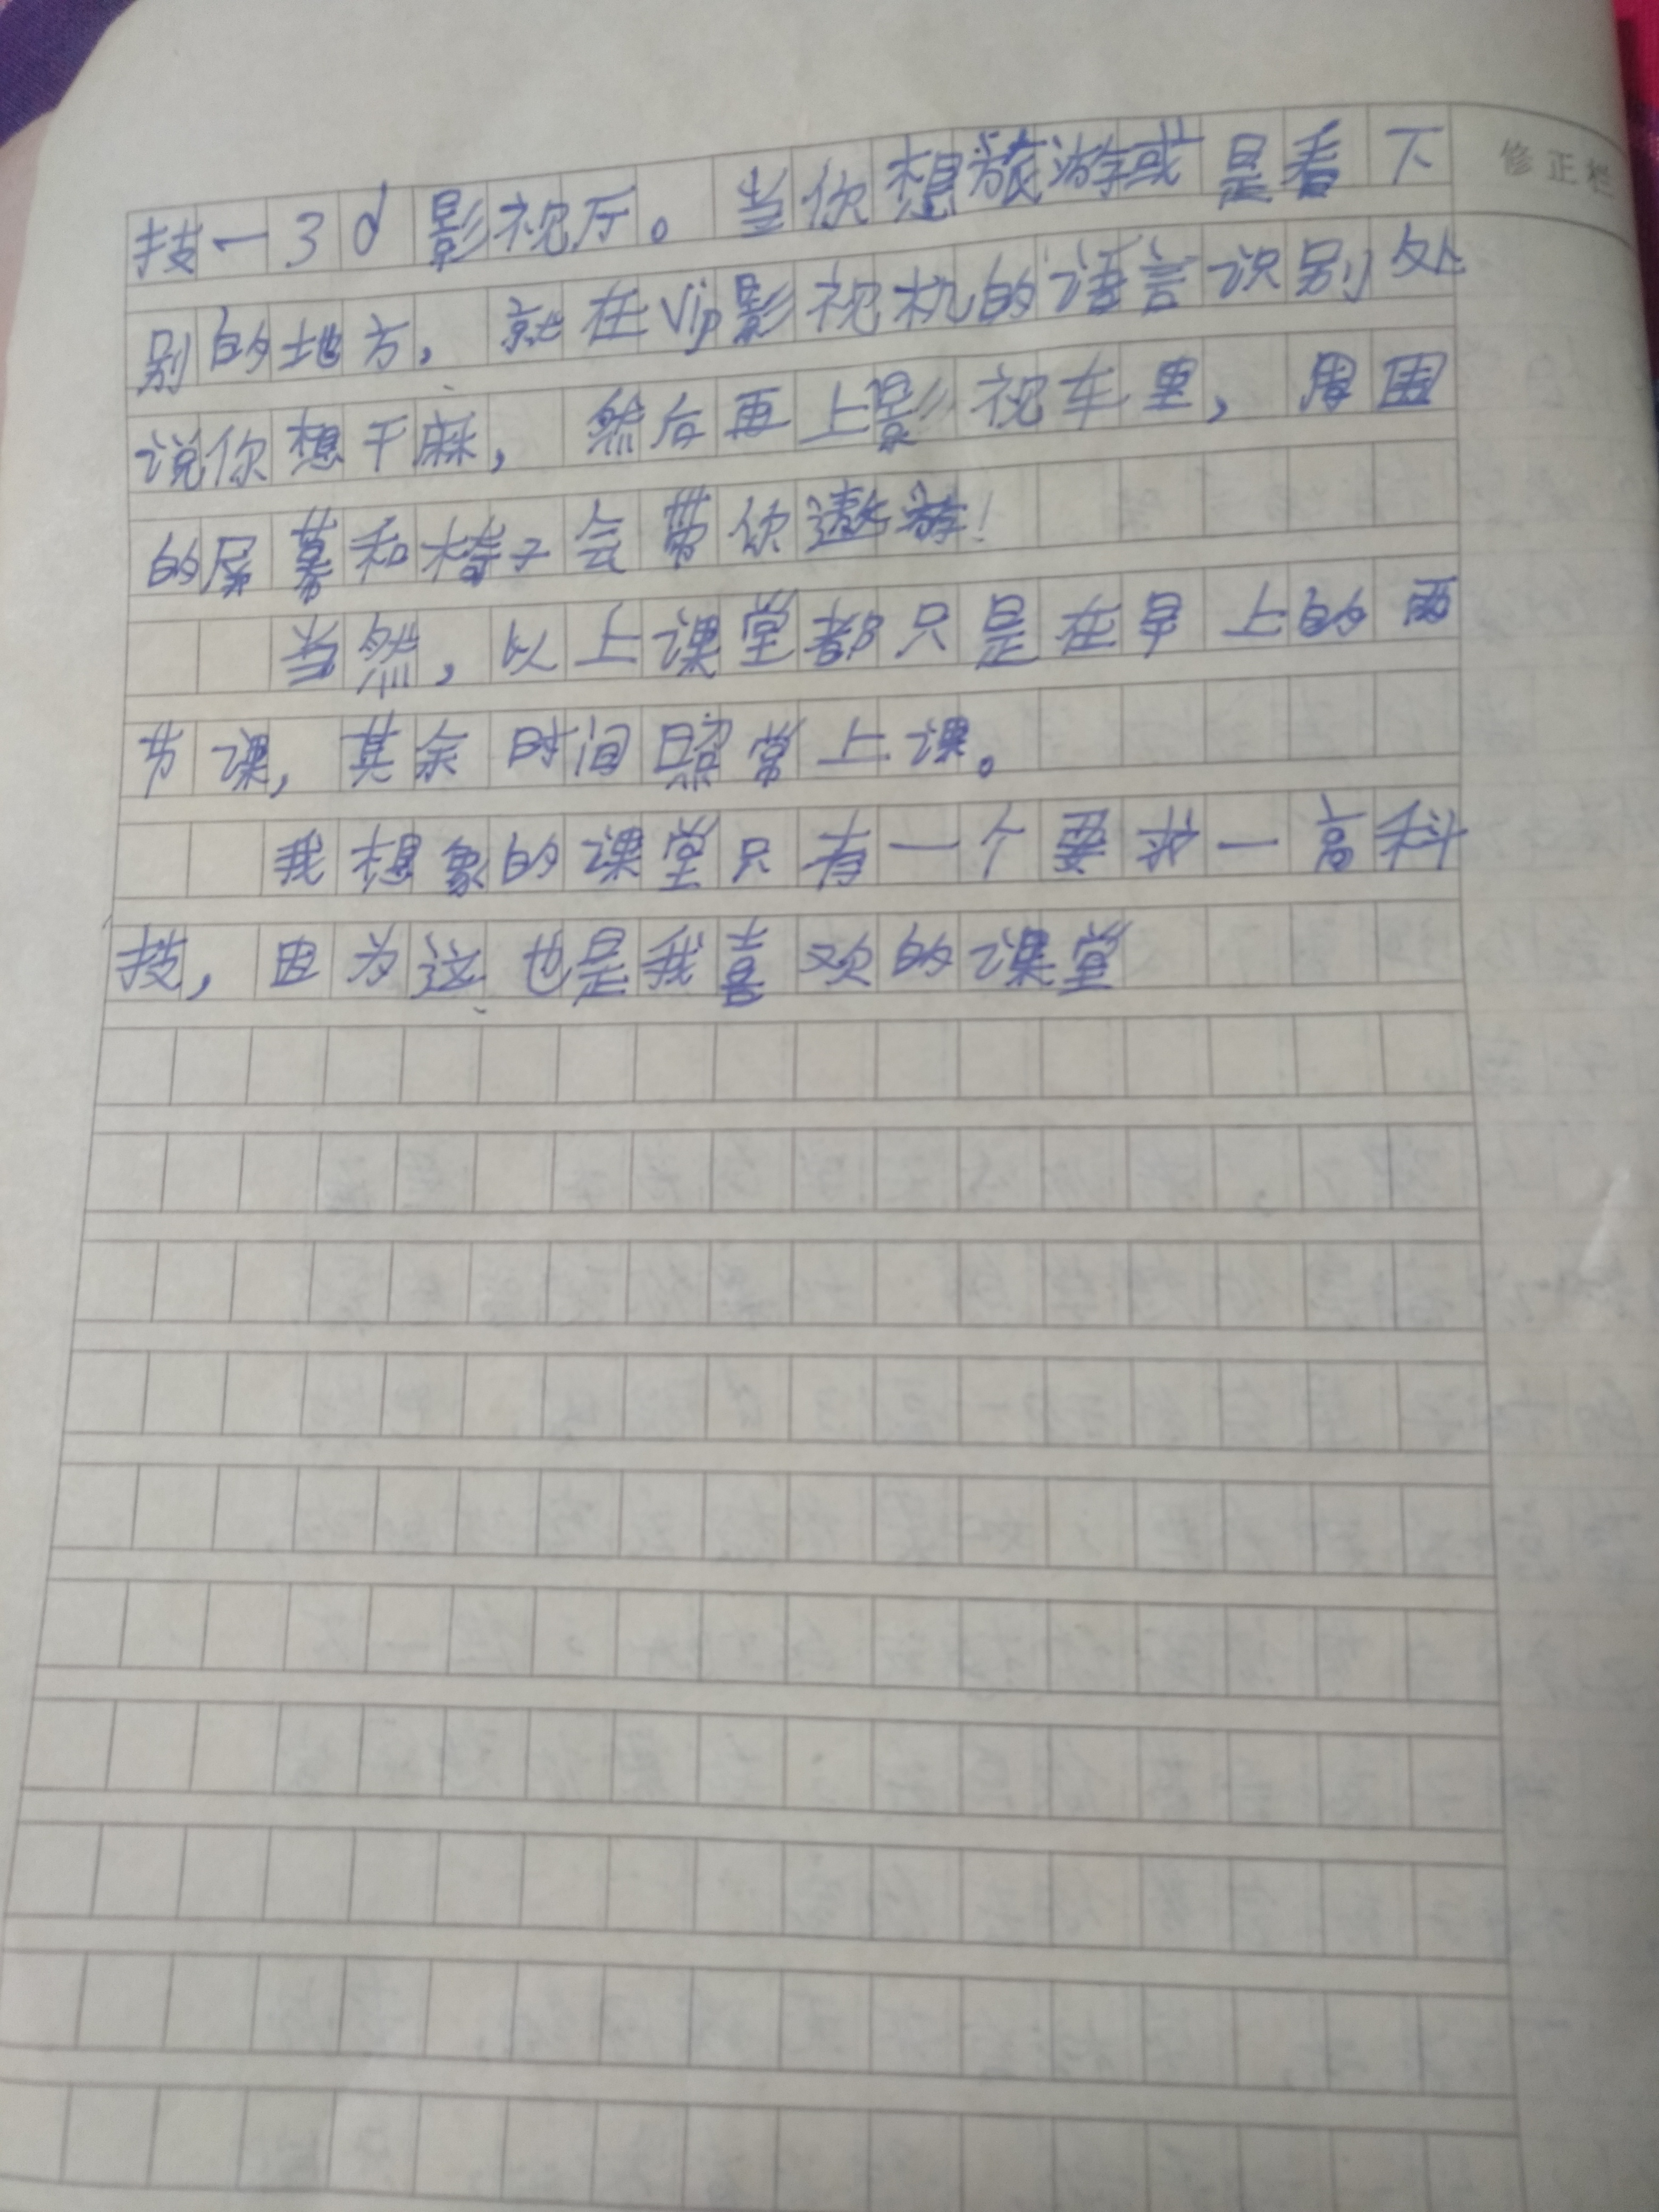 修正栏
技一3d影视厅。当你想旅游或是看下
别的地方，就在Vip影视机的语言识别处
说你想干麻，然后再上影视车里，周围
的屏幕和椅子会带你遨游！
当然，以上课堂都只是在早上的两
节课，其余时间照常上课。
我想象的课堂只有一个要求一高科
技，因为这也是我喜欢的课堂